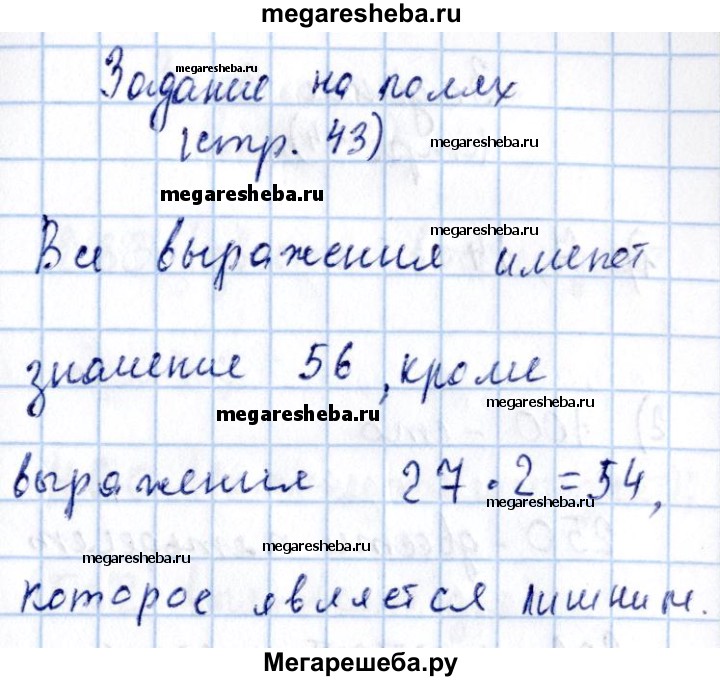 megaresheba.ru
megaresheba.ru
Задание на полях
(стр. 43)
megaresheba.ru
megaresheba.ru
megaresheba.ru
Все выражения имеют
значение 56, кроме
megaresheba.ru
megaresheba.ru
выражения 27 · 2 = 54,
megaresheba.ru
megaresheba.ru
которое является лишним.
Мегарешеба.ру